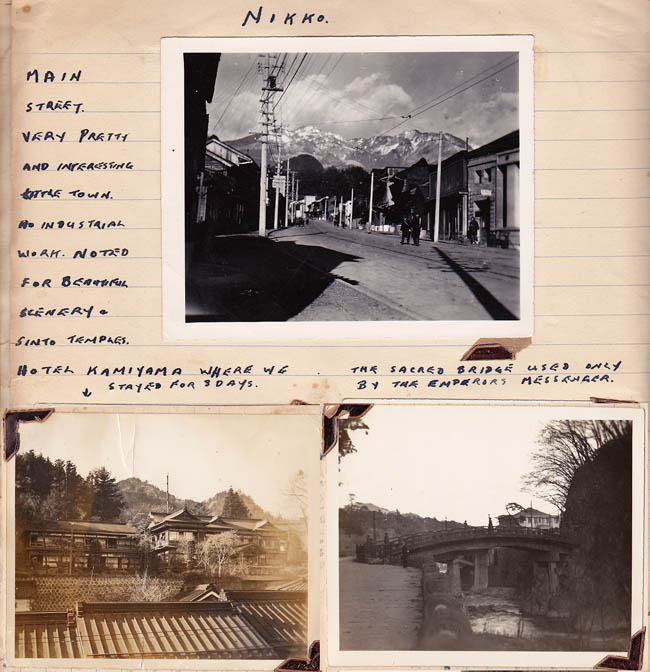 NIKKO.
MAIN
STREET.
VERY PRETTY
AND INTERESTING
LITTLE TOWN.
NO INDUSTRIAL
WORK. NOTED
FOR BEAUTIFUL
SCENERY &
SINTO TEMPLES.
HOTEL KAMIYAMA WHERE WE
STAYED FOR 3 DAYS.
THE SACRED BRIDGE USED ONLY
BY THE EMPERORS MESSENGER.